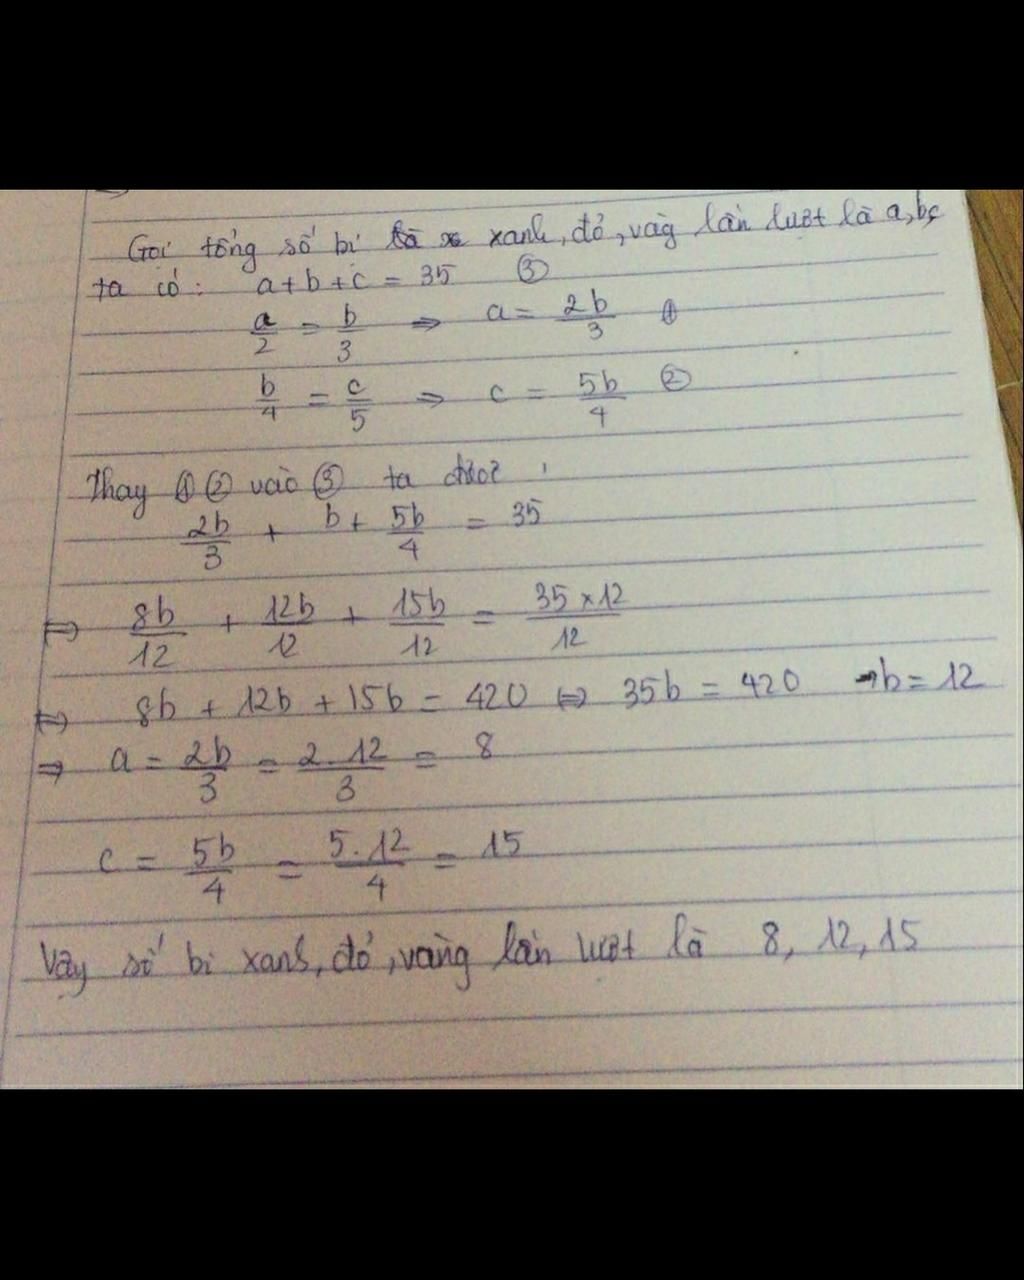 Gọi tổng số bi xanh, đỏ, vàng lần lượt là a, b, c
ta có: a + b + c = 35 ③
a/2 = b/3 ⇒ a = 2b/3 ①
b/4 = c/5 ⇒ c = 5b/4 ②
Thay ① ② vào ③ ta được :
2b/3 + b + 5b/4 = 35
⇔ 8b/12 + 12b/12 + 15b/12 = 35×12/12
⇔ 8b + 12b + 15b = 420 ⇔ 35b = 420 → b = 12
⇒ a = 2b/3 = 2.12/3 = 8
c = 5b/4 = 5.12/4 = 15
Vậy số bi xanh, đỏ, vàng lần lượt là 8, 12, 15